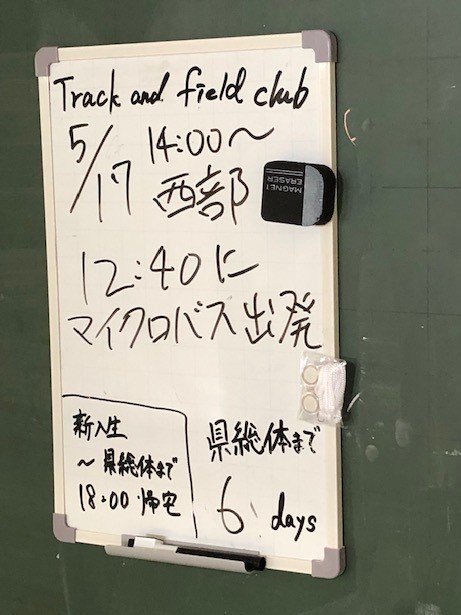 Track and field club
5/17 14:00～
西部
MAGNET
ERASER
12:40に
マイクロバス出発
新入生
～県総体まで
18:00 帰宅
県総体まで
6 days